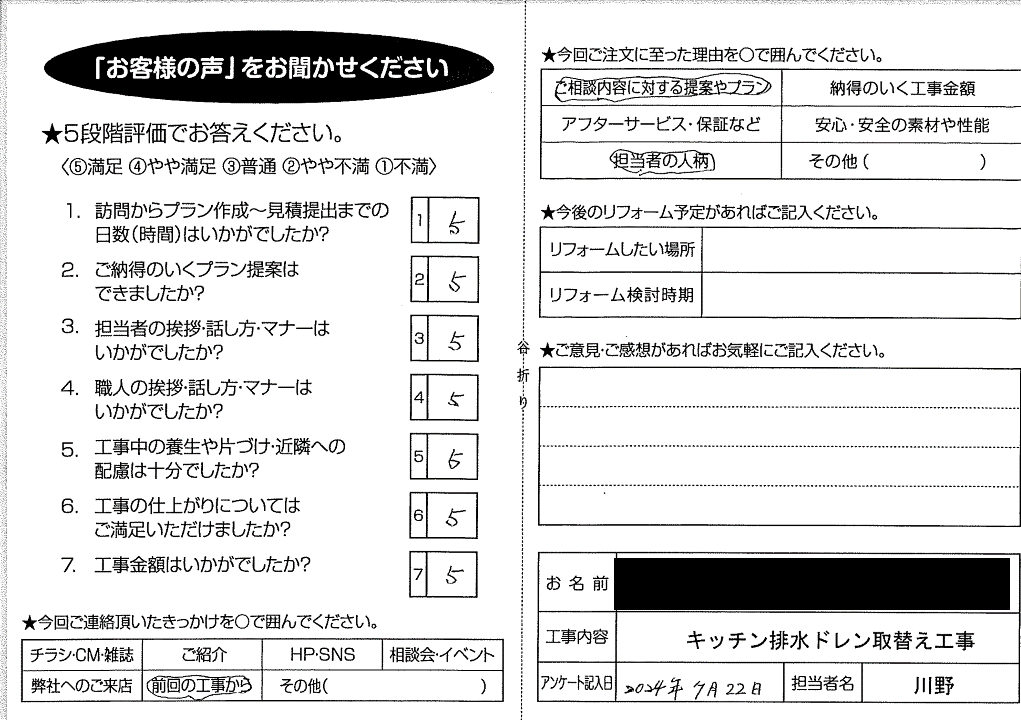 「お客様の声」をお聞かせください
★5段階評価でお答えください。
〈⑤満足 ④やや満足 ③普通 ②やや不満 ①不満〉
1. 訪問からプラン作成～見積提出までの
日数(時間)はいかがでしたか?
1 5
2. ご納得のいくプラン提案は
できましたか?
2 5
3. 担当者の挨拶・話し方・マナーは
いかがでしたか?
3 5
4. 職人の挨拶・話し方・マナーは
いかがでしたか?
4 5
5. 工事中の養生や片づけ・近隣への
配慮は十分でしたか?
5 5
6. 工事の仕上がりについては
ご満足いただけましたか?
6 5
7. 工事金額はいかがでしたか?
7 5
★今回ご連絡頂いたきっかけを○で囲んでください。
チラシ・CM・雑誌 ご紹介 HP・SNS 相談会・イベント
弊社へのご来店 前回の工事から その他( )
谷折り
★今回ご注文に至った理由を○で囲んでください。
ご相談内容に対する提案やプラン 納得のいく工事金額
アフターサービス・保証など 安心・安全の素材や性能
担当者の人柄 その他( )
★今後のリフォーム予定があればご記入ください。
リフォームしたい場所
リフォーム検討時期
★ご意見・ご感想があればお気軽にご記入ください。
お名前
工事内容 キッチン排水ドレン取替え工事
アンケート記入日 2024年7月22日 担当者名 川野